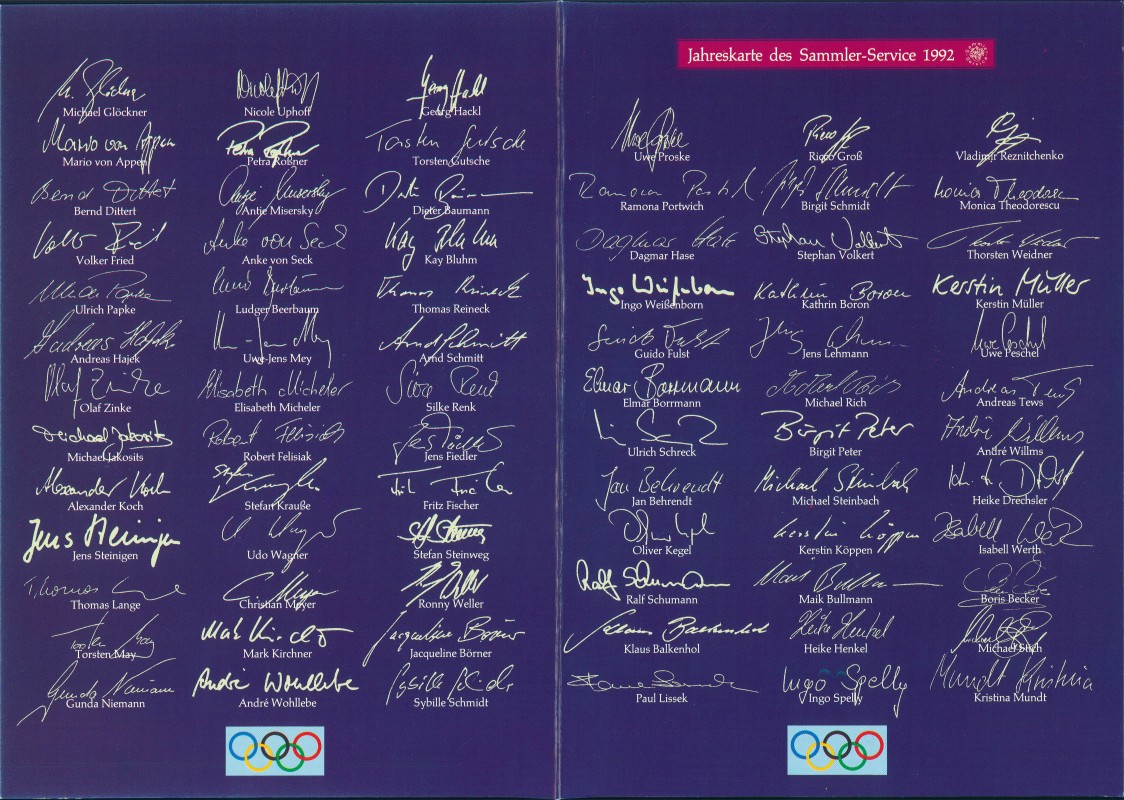 Jahreskarte des Sammler-Service 1992
Michael Glöckner Nicole Uphoff Georg Hackl
Mario von Appen Petra Roßner Torsten Gutsche
Bernd Dittert Antje Misersky Dieter Baumann
Volker Fried Anke von Seck Kay Bluhm
Ulrich Papke Ludger Beerbaum Thomas Reineck
Andreas Hajek Uwe-Jens Mey Arnd Schmitt
Olaf Zinke Elisabeth Micheler Silke Renk
Michael Jakosits Robert Felisiak Jens Fiedler
Alexander Koch Stefan Krauße Fritz Fischer
Jens Steinigen Udo Wagner Stefan Steinweg
Thomas Lange Christian Meyer Ronny Weller
Torsten May Mark Kirchner Jacqueline Börner
Gunda Niemann André Wohllebe Sybille Schmidt
Uwe Proske Ricco Groß Vladimir Reznitchenko
Ramona Portwich Birgit Schmidt Monica Theodorescu
Dagmar Hase Stephan Volkert Thorsten Weidner
Ingo Weißenborn Kathrin Boron Kerstin Müller
Guido Fulst Jens Lehmann Uwe Peschel
Elmar Borrmann Michael Rich Andreas Tews
Ulrich Schreck Birgit Peter André Willms
Jan Behrendt Michael Steinbach Heike Drechsler
Oliver Kegel Kerstin Köppen Isabell Werth
Ralf Schumann Maik Bullmann Boris Becker
Klaus Balkenhol Heike Henkel Michael Stich
Paul Lissek Ingo Spelly Kristina Mundt